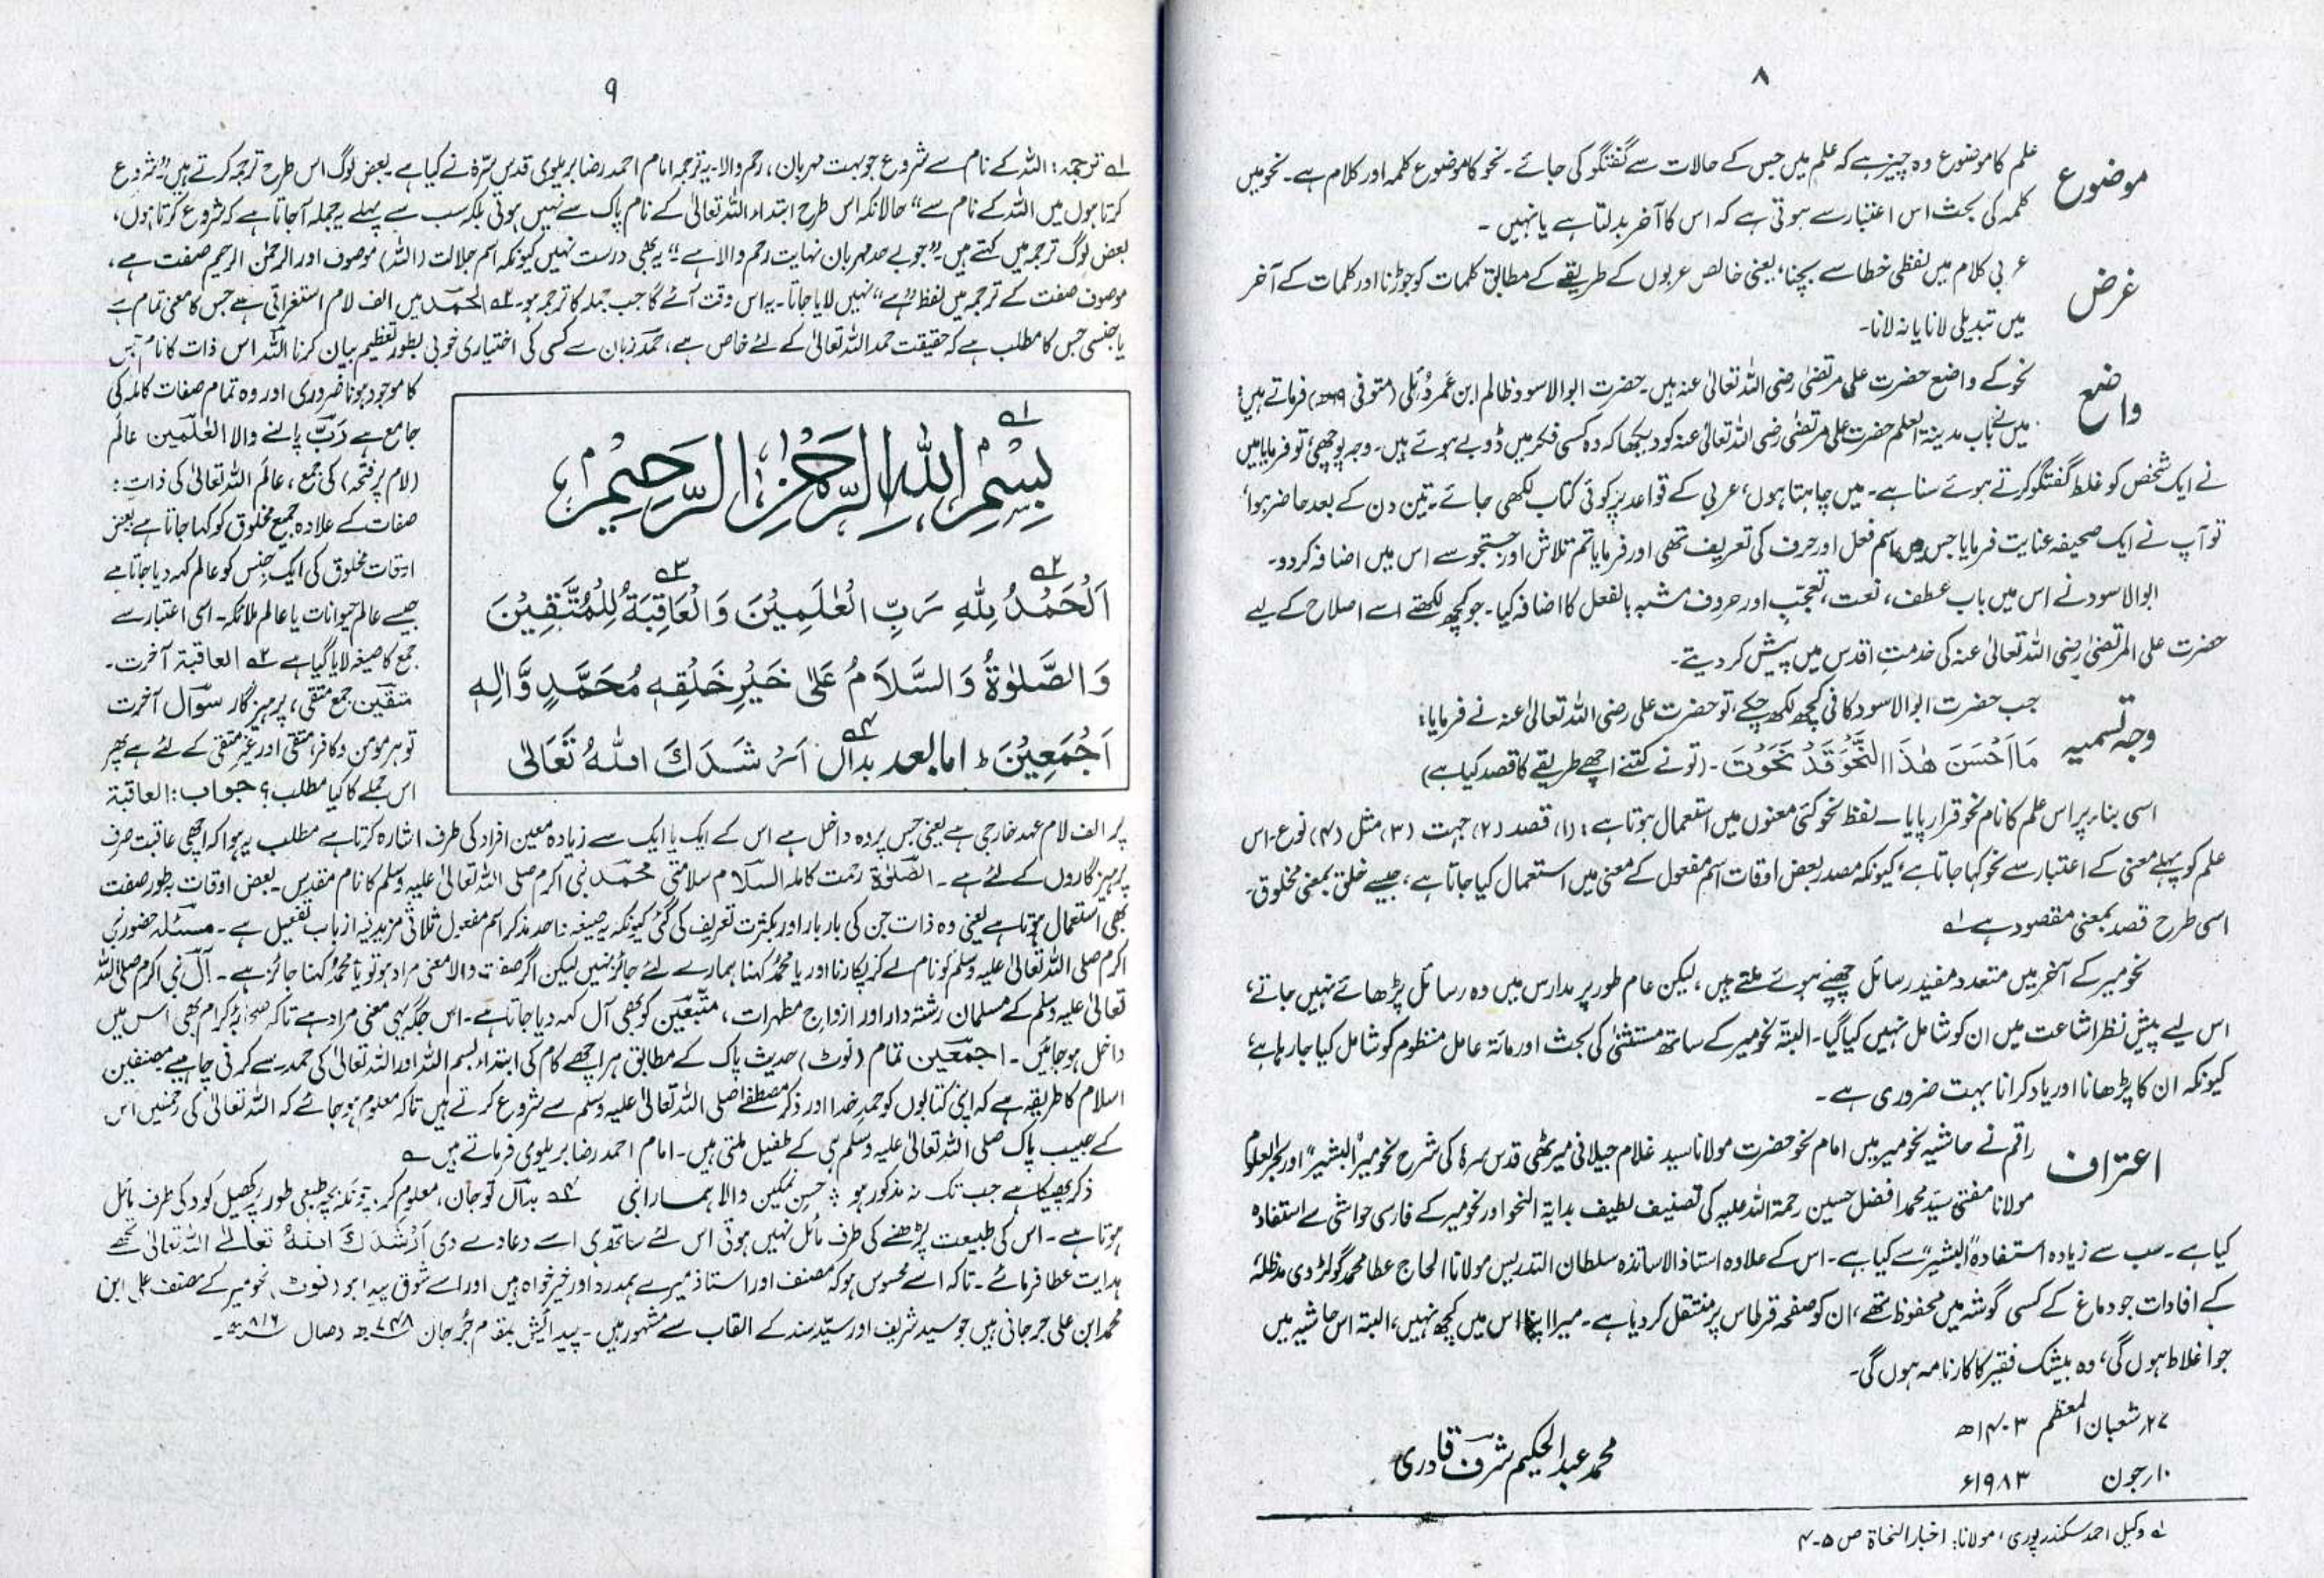 ۸
موضوع
علم کا موضوع وہ چیز ہے کہ علم میں جس کے حالات سے گفتگو کی جائے۔ نحو کا موضوع کلمہ اور کلام ہے۔ نحو میں
کلمہ کی بحث اس اعتبار سے ہوتی ہے کہ اس کا آخر بدلتا ہے یا نہیں ۔
غرض
عربی کلام میں لفظی خطا سے بچنا، یعنی خالص عربوں کے طریقے کے مطابق کلمات کو جوڑنا اور کلمات کے آخر
میں تبدیلی لانا یا نہ لانا۔
واضع
نحو کے واضع حضرت علی مرتضیٰ رضی اللہ تعالیٰ عنہ ہیں۔ حضرت ابوالاسود ظالم ابن عَمرو دُئلی (متوفی ۶۹ھ) فرماتے ہیں:
میں نے باب مدینۃ العلم حضرت علی مرتضیٰ رضی اللہ تعالیٰ عنہ کو دیکھا کہ وہ کسی فکر میں ڈوبے ہوئے ہیں۔ وجہ پوچھی، تو فرمایا میں
نے ایک شخص کو غلط گفتگو کرتے ہوئے سنا ہے۔ میں چاہتا ہوں، عربی کے قواعد پر کوئی کتاب لکھی جائے۔ تین دن کے بعد حاضر ہوا،
تو آپ نے ایک صحیفہ عنایت فرمایا جس میں اسم فعل اور حرف کی تعریف تھی اور فرمایا تم تلاش اور جستجو سے اس میں اضافہ کردو۔
ابوالاسود نے اس میں باب عطف، نعت، تعجّب اور حروف مشبہ بالفعل کا اضافہ کیا۔ جو کچھ لکھتے اسے اصلاح کے لیے
حضرت علی المرتضیٰ رضی اللہ تعالیٰ عنہ کی خدمتِ اقدس میں پیش کر دیتے۔
وجہ تسمیہ
جب حضرت ابوالاسود کافی کچھ لکھ چکے، تو حضرت علی رضی اللہ تعالیٰ عنہ نے فرمایا:
مَا اَحْسَنَ هٰذَا النَّحْوَ قَدْ نَحَوْتَ۔ (تو نے کتنے اچھے طریقے کا قصد کیا ہے)
اسی بناء پر اس علم کا نام نحو قرار پایا۔ لفظ نحو کئی معنوں میں استعمال ہوتا ہے: (۱) قصد (۲) جہت (۳) مثل (۴) نوع۔ اس
علم کو پہلے معنی کے اعتبار سے نحو کہا جاتا ہے، کیونکہ مصدر بعض اوقات اسم مفعول کے معنی میں استعمال کیا جاتا ہے، جیسے خلق بمعنی مخلوق۔
اسی طرح قصد بمعنی مقصود ہے ؎۱
نحو میر کے آخر میں متعدد مفید رسائل چھپے ہوئے ملتے ہیں، لیکن عام طور پر مدارس میں وہ رسائل پڑھائے نہیں جاتے،
اس لیے پیش نظر اشاعت میں ان کو شامل نہیں کیا گیا۔ البتہ نحو میر کے ساتھ مستثنیٰ کی بحث اور مائۃ عامل منظوم کو شامل کیا جا رہا ہے،
کیونکہ ان کا پڑھانا اور یاد کرانا بہت ضروری ہے۔
اعتراف
راقم نے حاشیہ نحو میر میں امام نحو حضرت مولانا سید غلام جیلانی میرٹھی قدس سرہٗ کی شرح نحو میر "البشیر" اور بحر العلوم
مولانا مفتی سید محمد افضل حسین رحمۃ اللہ علیہ کی تصنیف لطیف ہدایۃ النحو اور نحو میر کے فارسی حواشی سے استفادہ
کیا ہے۔ سب سے زیادہ استفادہ "البشیر" سے کیا ہے۔ اس کے علاوہ استاذ الاساتذہ سلطان التدریس مولانا الحاج عطا محمد گولڑوی مدظلہٗ
کے افادات جو دماغ کے کسی گوشہ میں محفوظ تھے، ان کو صفحہ قرطاس پر منتقل کر دیا ہے۔ میرا اپنا اس میں کچھ نہیں، البتہ اس حاشیہ میں
جو اغلاط ہوں گی، وہ بیشک فقیر کا کارنامہ ہوں گی۔
۲۷ر شعبان المعظم ۱۴۰۳ھ
۱۰ر جون ۱۹۸۳ء
محمد عبدالحکیم شرف قادری
؎۱ وکیل احمد سکندرپوری، مولانا: اخبار النحاۃ ص ۵-۴
۹
؎۱ ترجمہ: اللہ کے نام سے شروع جو بہت مہربان، رحم والا۔ یہ ترجمہ امام احمد رضا بریلوی قدس سرّہٗ نے کیا ہے بعض لوگ اس طرح ترجمہ کرتے ہیں "شروع
کرتا ہوں میں اللہ کے نام سے" حالانکہ اس طرح ابتداء اللہ تعالیٰ کے نام پاک سے نہیں ہوتی بلکہ سب سے پہلے یہ جملہ آجاتا ہے کہ شروع کرتا ہوں،
بعض لوگ ترجمہ میں کہتے ہیں "جو بے حد مہربان نہایت رحم والا ہے" یہ بھی درست نہیں کیونکہ اسم جلالت (اللہ) موصوف اور الرحمٰن الرحیم صفت ہے،
موصوف صفت کے ترجمہ میں لفظ "ہے" نہیں لایا جاتا۔ یہ اس وقت آئے گا جب جملہ کا ترجمہ ہو۔ ؎۲ الحمد میں الف لام استغراقی ہے جس کا معنی تمام ہے
یا جنسی جس کا مطلب ہے کہ حقیقت حمد اللہ تعالیٰ کے لئے خاص ہے، حمد زبان سے کسی کی اختیاری خوبی بطور تعظیم بیان کرنا اللہ اس ذات کا نام جس
کا موجود ہونا ضروری اور وہ تمام صفات کاملہ کی
جامع ہے رَبّ پالنے والا العٰلمین عالَم
(لام پر فتحہ) کی جمع، عالَم اللہ تعالیٰ کی ذات:
صفات کے علاوہ جمیع مخلوق کو کہا جاتا ہے بعض
اوقات مخلوق کی ایک جنس کو عالم کہہ دیا جاتا ہے
جیسے عالم حیوانات یا عالم ملائکہ۔ اسی اعتبار سے
جمع کا صیغہ لایا گیا ہے ؎۳ العاقبۃ آخرت۔
متقین جمع متقی، پرہیزگار سوال آخرت
تو ہر مومن و کافر، متقی اور غیر متقی کے لئے ہے پھر
اس جملے کا کیا مطلب؟ جواب: العاقبۃ
؎۱
بِسْمِ اللهِ الرَّحْمٰنِ الرَّحِيْمِ
؎۲ ؎۳
اَلْحَمْدُ لِلّٰهِ رَبِّ الْعٰلَمِيْنَ وَالْعَاقِبَةُ لِلْمُتَّقِيْنَ
وَالصَّلٰوةُ وَالسَّلَامُ عَلٰى خَيْرِ خَلْقِهٖ مُحَمَّدٍ وَّاٰلِهٖ
اَجْمَعِيْنَ ط امابعد بداں ؎۴ اَرْشَدَكَ اللهُ تَعَالٰى
پر الف لام عہد خارجی ہے یعنی جس پر وہ داخل ہے اس کے ایک یا ایک سے زیادہ معین افراد کی طرف اشارہ کرتا ہے مطلب یہ ہوا کہ اچھی عاقبت صرف
پرہیزگاروں کے لئے ہے۔ الصّلٰوۃ رحمت کاملہ السلام سلامتی محمد نبی اکرم صلی اللہ تعالیٰ علیہ وسلم کا نام مقدس۔ بعض اوقات بطور صفت
بھی استعمال ہوتا ہے یعنی وہ ذات جن کی بار بار اور بکثرت تعریف کی گئی کیونکہ یہ صیغہ واحد مذکر اسم مفعول ثلاثی مزید فیہ از باب تفعیل ہے۔ مسئلہ حضور نبی
اکرم صلی اللہ تعالیٰ علیہ وسلم کو نام لے کر پکارنا اور یا محمدُ کہنا ہمارے لئے جائز نہیں لیکن اگر صفت والا معنی مراد ہو تو یا محمدُ کہنا جائز ہے۔ آل نبی اکرم صلی اللہ
تعالیٰ علیہ وسلم کے مسلمان رشتہ دار اور ازواج مطہرات، متبعین کو بھی آل کہہ دیا جاتا ہے۔ اس جگہ یہی معنی مراد ہے تاکہ صحابۂ کرام بھی اس میں
داخل ہو جائیں۔ اجمعین تمام (نوٹ) حدیث پاک کے مطابق ہر اچھے کام کی ابتداء بسم اللہ اور اللہ تعالیٰ کی حمد سے کرنی چاہیے مصنفین
اسلام کا طریقہ ہے کہ اپنی کتابوں کو حمد خدا اور ذکر مصطفےٰ صلی اللہ تعالیٰ علیہ وسلم سے شروع کرتے ہیں تاکہ معلوم ہو جائے کہ اللہ تعالیٰ کی رحمتیں اس
کے حبیب پاک صلی اللہ تعالیٰ علیہ وسلم ہی کے طفیل ملتی ہیں۔ امام احمد رضا بریلوی فرماتے ہیں ؎
ذکر پھیکا ہے جب تک نہ مذکور ہو ؞ حسن نمکین والا ہمارا نبی ؎۴ بداں تو جان، معلوم کر چونکہ بچہ طبعی طور پر کھیل کود کی طرف مائل
ہوتا ہے۔ اس کی طبیعت پڑھنے کی طرف مائل نہیں ہوتی اس لئے ساتھ ہی اسے دعا دے دی اَرْشَدَكَ اللهُ تعالےٰ اللہ تعالیٰ تجھے
ہدایت عطا فرمائے۔ تاکہ اسے محسوس ہو کہ مصنف اور استاذ میرے ہمدرد اور خیر خواہ ہیں اور اسے شوق پیدا ہو (نوٹ) نحو میر کے مصنف علی ابن
محمد ابن علی جرجانی ہیں جو سید شریف اور سیّد سند کے القاب سے مشہور ہیں۔ پیدائش بمقام جُرجان ۷۴۸ھ وصال ۸۱۶ھ۔